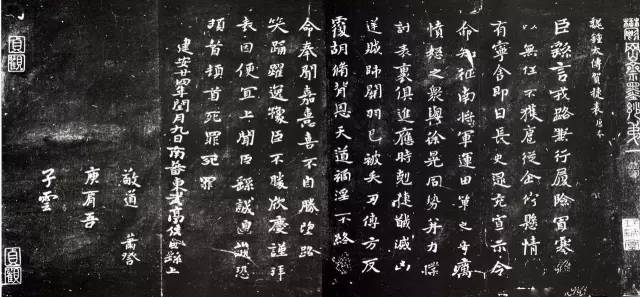 魏鍾太傅賀捷表 唐本
臣繇言戎路兼行履險冒寒臣
以無任不獲扈從企佇懸情無
有寧舍即日長史逯充宣示令
命知征南將軍運田單之奇厲
憤怒之衆與徐晃同勢并力撲
討表裏俱進應時剋捷馘滅凶
逆賊帥關羽已被矢刃傅方反
覆胡脩背恩天道禍淫不終厥
命奉聞嘉憙喜不自勝望路載
笑踊躍逸豫臣不勝欣慶謹拜
表因便宜上聞臣繇誠惶誠恐
頓首頓首死罪死罪
建安廿四年閏月九日南蕃東武亭侯臣繇上
敬道
庾肩吾
子雲
貞觀
貞觀